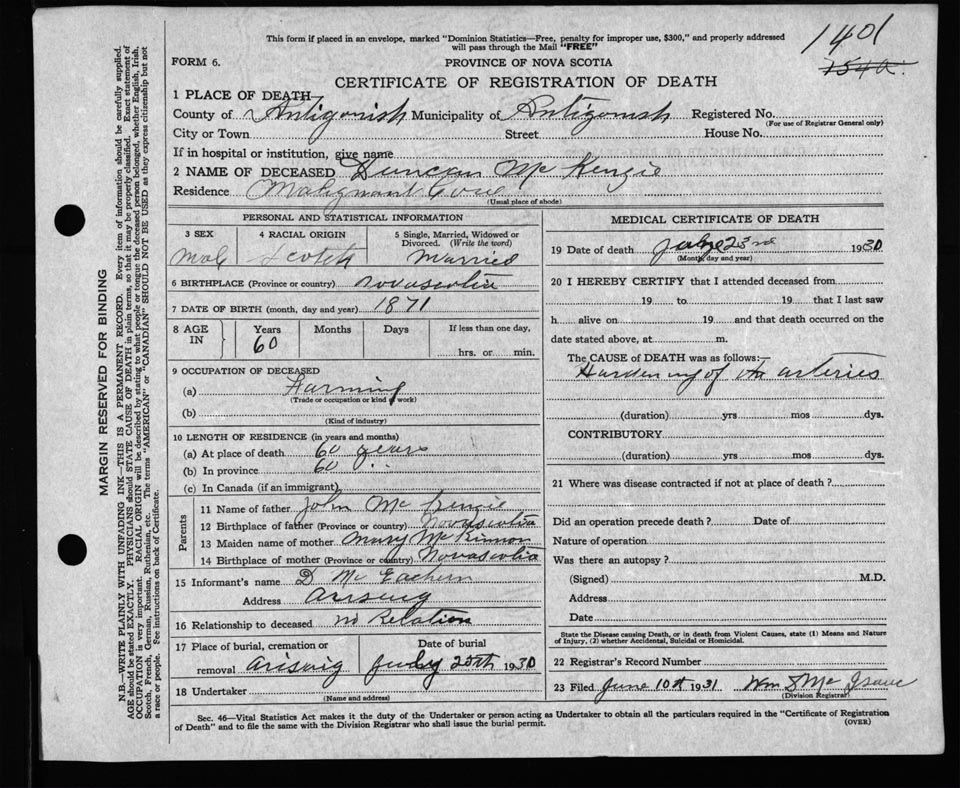 1401
154a.
This form if placed in an envelope, marked "Dominion Statistics—Free, penalty for improper use, $300," and properly addressed
will pass through the Mail "FREE"
FORM 6.
PROVINCE OF NOVA SCOTIA
CERTIFICATE OF REGISTRATION OF DEATH
1 PLACE OF DEATH
County of Antigonish Municipality of Antigonish Registered No.
(For use of Registrar General only)
City or Town Street House No.
If in hospital or institution, give name
2 NAME OF DECEASED Duncan McKenzie
Residence Malignant Cove
(Usual place of abode)
PERSONAL AND STATISTICAL INFORMATION
3 SEX 4 RACIAL ORIGIN 5 Single, Married, Widowed or
Divorced. (Write the word)
Mal Scotch Married
6 BIRTHPLACE (Province or country) Novascotia
7 DATE OF BIRTH (month, day and year) 1871
8 AGE IN Years Months Days If less than one day,
60 hrs. or min.
9 OCCUPATION OF DECEASED
(a) Farming
(Trade or occupation or kind of work)
(b)
(Kind of industry)
10 LENGTH OF RESIDENCE (in years and months)
(a) At place of death 60 years
(b) In province 60 "
(c) In Canada (if an immigrant)
Parents
11 Name of father John McKenzie
12 Birthplace of father (Province or country) Novascotia
13 Maiden name of mother Mary McKinnon
14 Birthplace of mother (Province or country) Novascotia
15 Informant's name D McEachern
Address Arisaig
16 Relationship to deceased no Relation
17 Place of burial, cremation or Date of burial
removal Arisaig July 25th 1930
18 Undertaker
(Name and address)
MEDICAL CERTIFICATE OF DEATH
19 Date of death July 23rd 1930
(Month, day and year)
20 I HEREBY CERTIFY that I attended deceased from
19 to 19 that I last saw
h alive on 19 and that death occurred on the
date stated above, at m.
The CAUSE of DEATH was as follows:—
Hardening of the arteries
(duration) yrs mos dys.
CONTRIBUTORY
(duration) yrs mos dys.
21 Where was disease contracted if not at place of death?
Did an operation precede death? Date of
Nature of operation
Was there an autopsy?
(Signed) M.D.
Address
Date
State the Disease causing Death, or in death from Violent Causes, state (1) Means and Nature
of Injury, (2) whether Accidental, Suicidal or Homicidal.
22 Registrar's Record Number
23 Filed June 10th 1931 Wm S McIsaac
(Division Registrar)
Sec. 46—Vital Statistics Act makes it the duty of the Undertaker or person acting as Undertaker to obtain all the particulars required in the "Certificate of Registration
of Death" and to file the same with the Division Registrar who shall issue the burial permit.
(OVER)
MARGIN RESERVED FOR BINDING
N.B.—WRITE PLAINLY WITH UNFADING INK—THIS IS A PERMANENT RECORD. Every item of information should be carefully supplied.
AGE should be stated EXACTLY. PHYSICIANS should STATE CAUSE OF DEATH in plain terms, so that it may be properly classified. Exact statement of
OCCUPATION is very important. RACIAL ORIGIN will be described by stating to what people or tongue the deceased person belonged, whether English, Irish,
Scotch, French, German, Russian, Ruthenian, etc. The terms "AMERICAN" or "CANADIAN" SHOULD NOT BE USED as they express citizenship but not
a race or people. See instructions on back of Certificate.